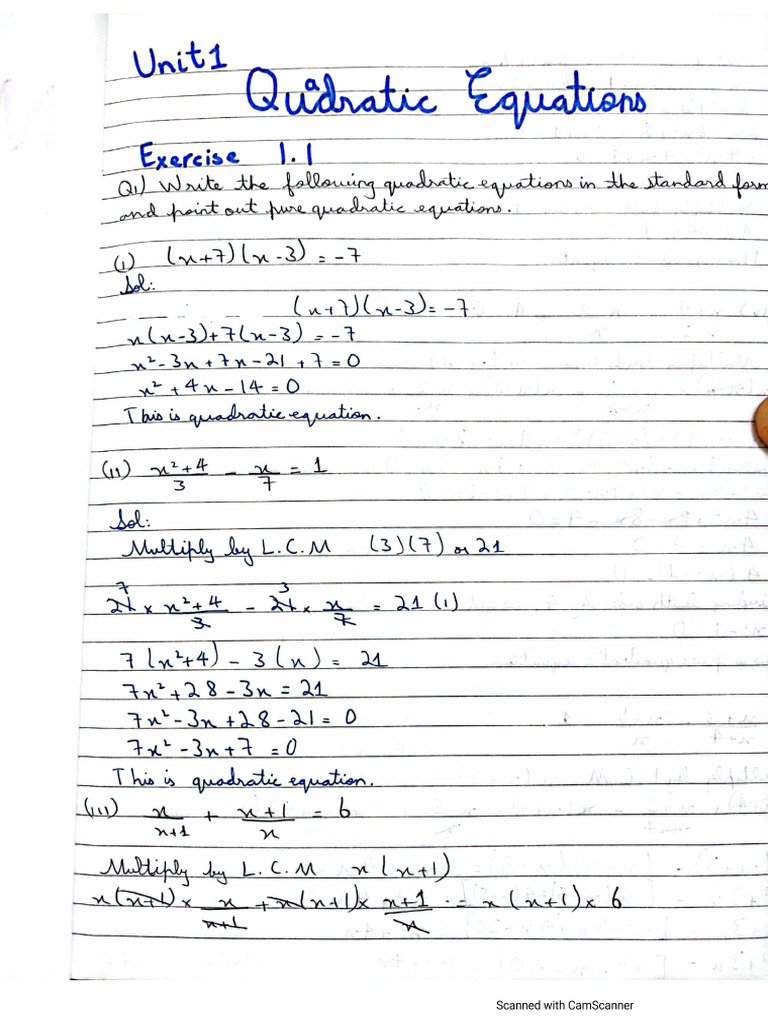 Unit 1
Quadratic Equations
Exercise 1.1
Q1) Write the following quadratic equations in the standard form
and point out pure quadratic equations.
(i) (x+7)(x-3) = -7
Sol:
(x+7)(x-3) = -7
x(x-3)+7(x-3) = -7
x² - 3x + 7x - 21 + 7 = 0
x² + 4x - 14 = 0
This is quadratic equation.
(ii) (x²+4)/3 - x/7 = 1
Sol:
Multiply by L.C.M (3)(7) or 21
7 3
21 × (x²+4)/3 - 21 × x/7 = 21(1)
7(x²+4) - 3(x) = 21
7x² + 28 - 3x = 21
7x² - 3x + 28 - 21 = 0
7x² - 3x + 7 = 0
This is quadratic equation.
(iii) x/(x+1) + (x+1)/x = 6
Multiply by L.C.M x(x+1)
x(x+1) × x/(x+1) + x(x+1) × (x+1)/x = x(x+1) × 6
Scanned with CamScanner